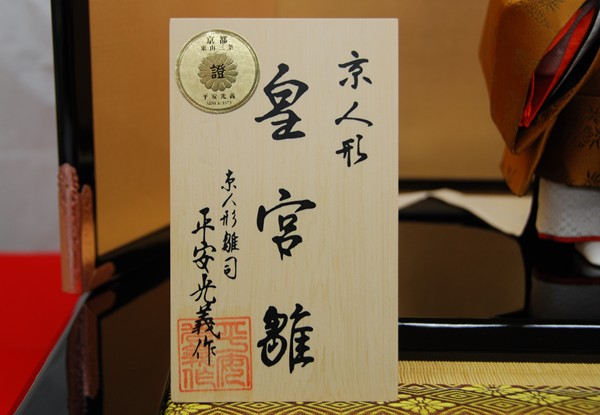 京人形
皇宮雛
京人形雛司
平安光義作
京都
東山三条
證
平安光義